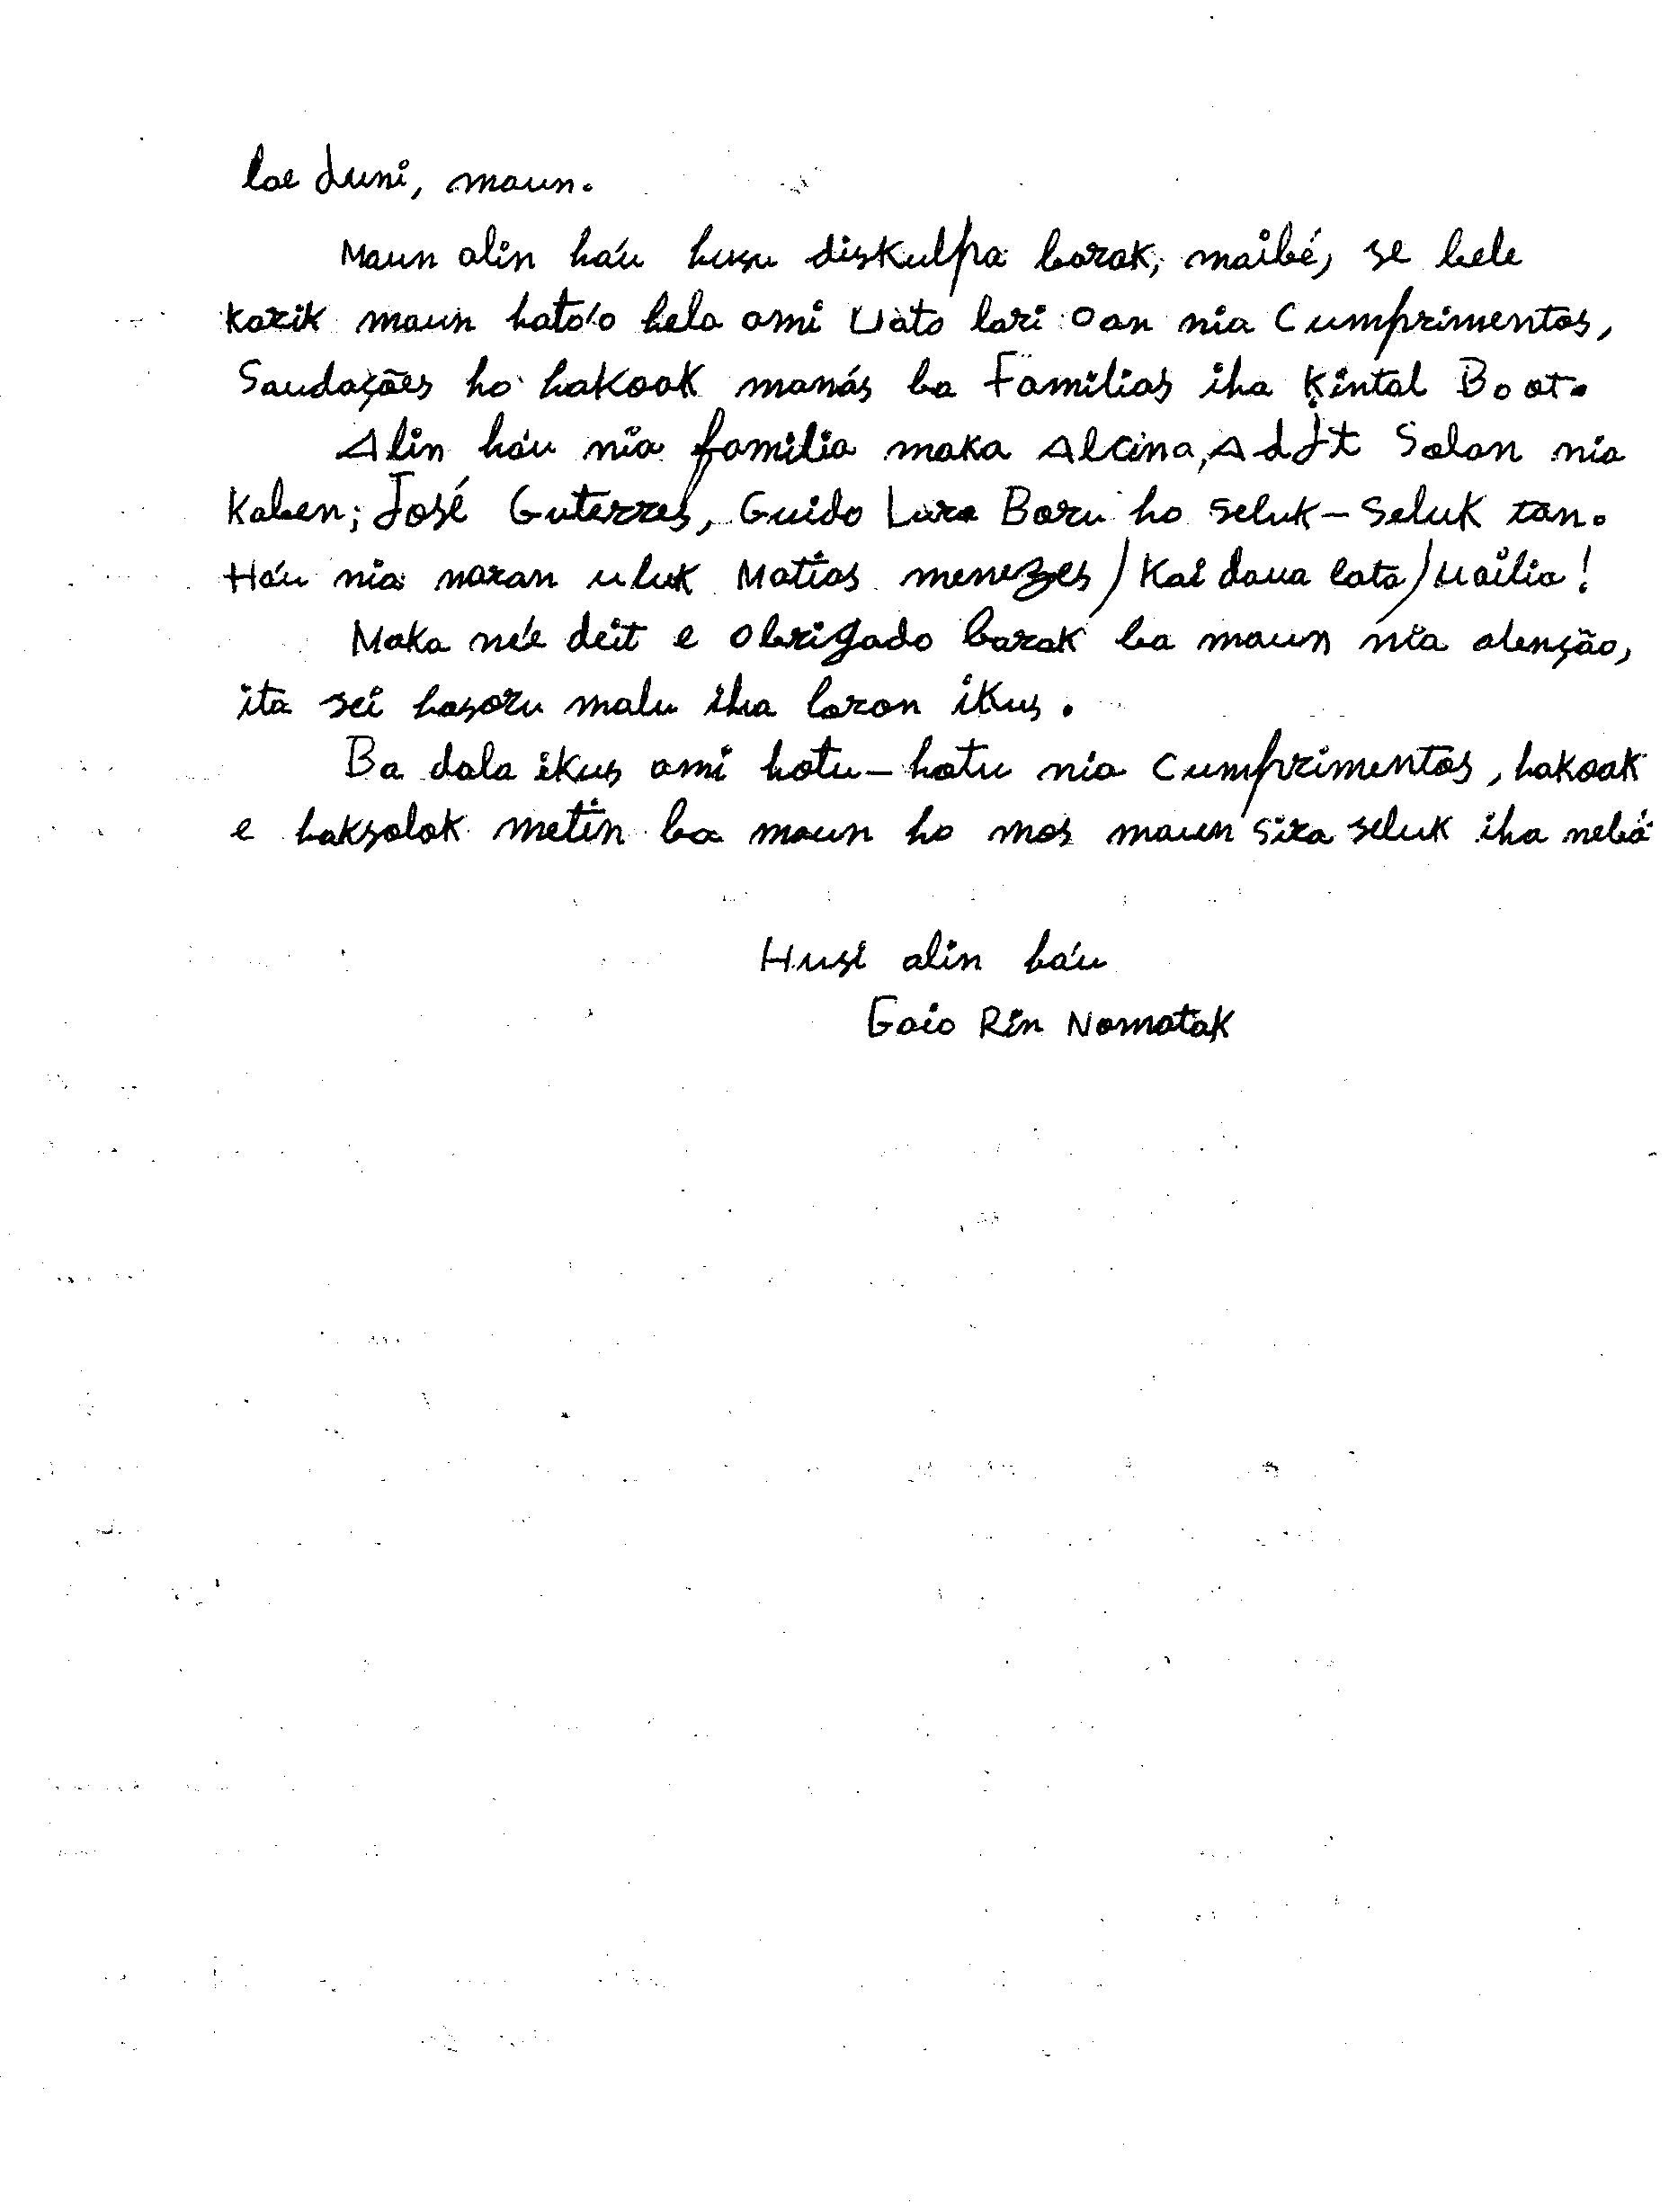 lae duni, maun.
Maun alin ha'u husu diskulpa barak, maibé, se bele
karik maun hato'o hela ami Uato lari oan nia Cumprimentos,
Saudações ho hakoak manás ba Familias iha Kintal Boot.
Alin ha'u nia familia maka Alcina, Adjt Solan nia
Kaben; José Guterres, Guido Lara Boru ho seluk-seluk tan.
Ha'u nia naran uluk Matias menezes/Kai daua lata/Uailia!
Maka ne'e deit e obrigado barak ba maun nia atenção,
ita sei hasoru malu iha loron ikus.
Ba dala ikus ami hotu-hotu nia Cumprimentos, hakoak
e haksolok metin ba maun ho mos maun sira seluk iha nebá
Husi alin ha'u
Gaio Rin Nomatak